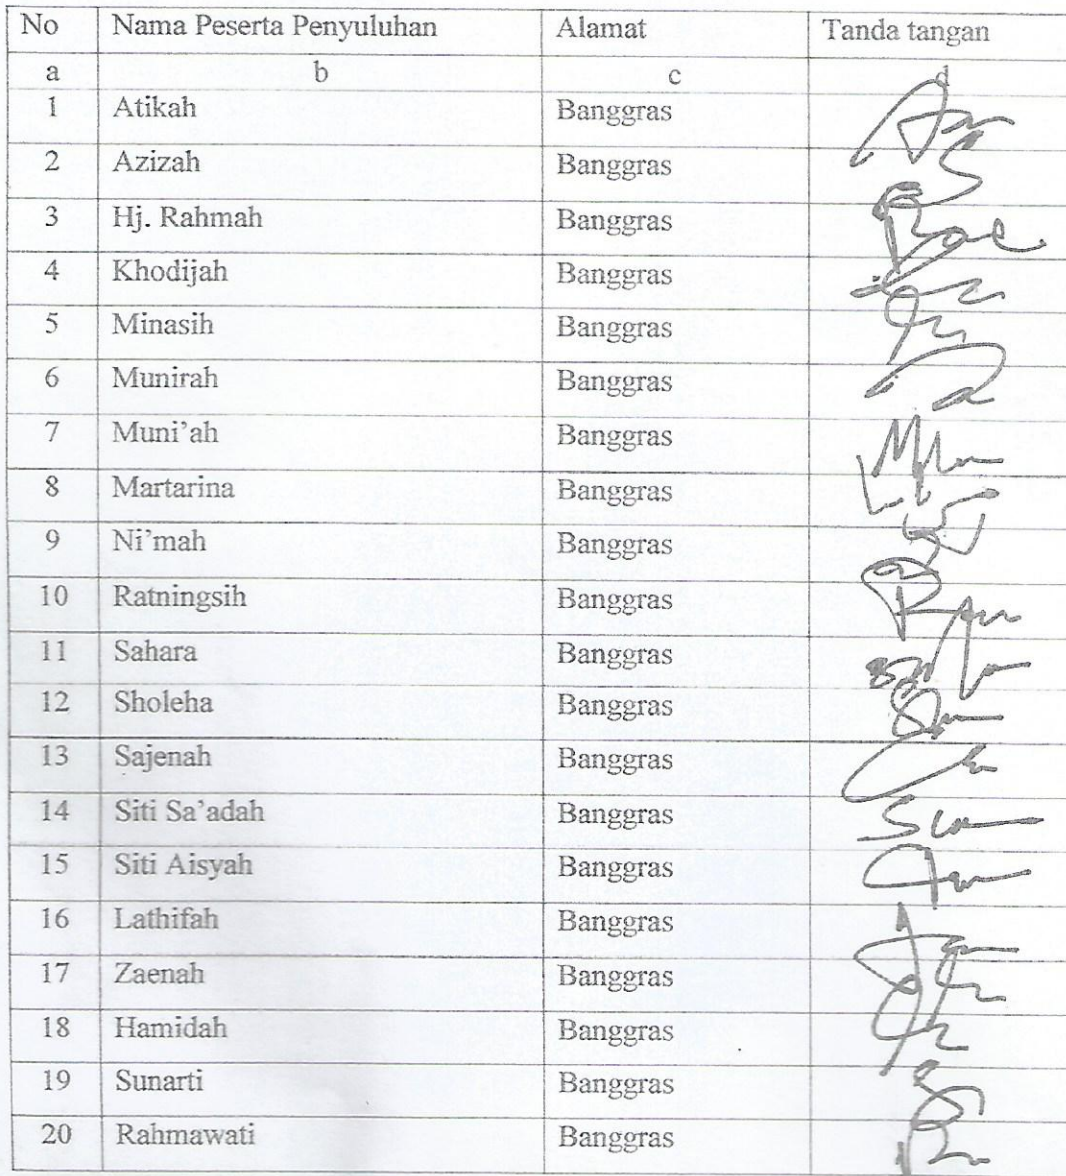 No Nama Peserta Penyuluhan Alamat Tanda tangan
a b c d
1 Atikah Banggras
2 Azizah Banggras
3 Hj. Rahmah Banggras
4 Khodijah Banggras
5 Minasih Banggras
6 Munirah Banggras
7 Muni'ah Banggras
8 Martarina Banggras
9 Ni'mah Banggras
10 Ratningsih Banggras
11 Sahara Banggras
12 Sholeha Banggras
13 Sajenah Banggras
14 Siti Sa'adah Banggras
15 Siti Aisyah Banggras
16 Lathifah Banggras
17 Zaenah Banggras
18 Hamidah Banggras
19 Sunarti Banggras
20 Rahmawati Banggras